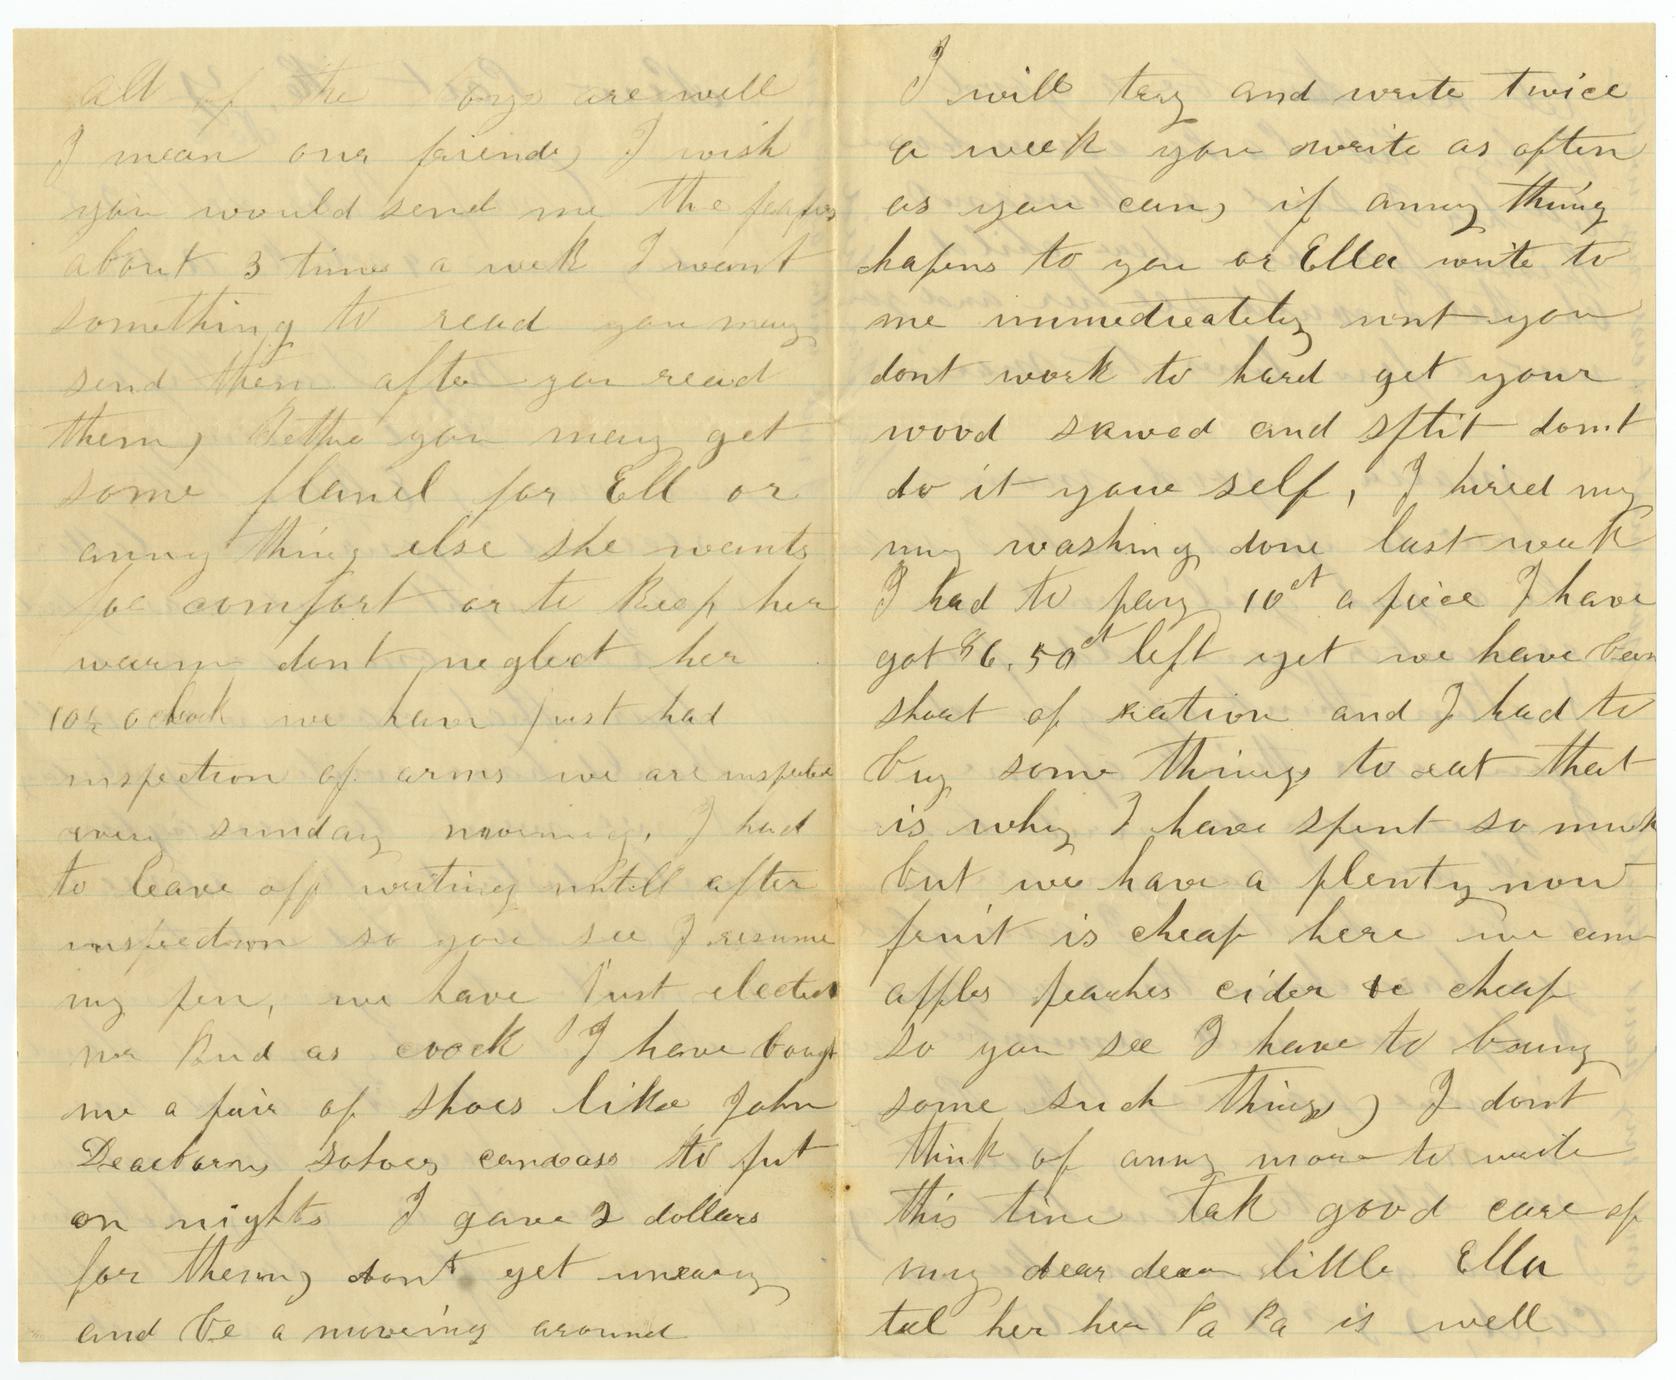 all of the boys are well
I mean our friends, I wish
you would send me the papers
about 3 times a week I want
something to read you may
send them after you read
them, Nettie you may get
some flanel for Ell or
anny thing else she wants
for comfort or to keep her
warm dont neglect her
10½ oclock we have just had
inspection of arms we are inspected
every sunday morning, I had
to leave off writing untill after
inspection so you see I resume
my pen, we have just elected
Mr Bud as cook I have bougt
me a pair of shoes like John
Dearborns canvass to put
on nights I gave 2 dollars
for them, don't get uneasy
and be a moveing around
I will tray and write twice
a week you write as often
as you can, if anny thing
hapens to you or Ella write to
me immedieatley wont you
dont work to hard get your
wood sawed and split dont
do it youre self, I hired my
my washing done last week
I had to pay 10ct a piece I have
got $6.50ct left yet we have ben
short of ration and I had to
buy some things to eat that
is why I have spent so much
but we have a plenty now
fruit is cheap here we can
apples peaches cider &c cheap
so you see I have to buy
some such things, I dont
think of anny more to write
this time tak good care of
my dear dear little Ella
tel her her Pa Pa is well